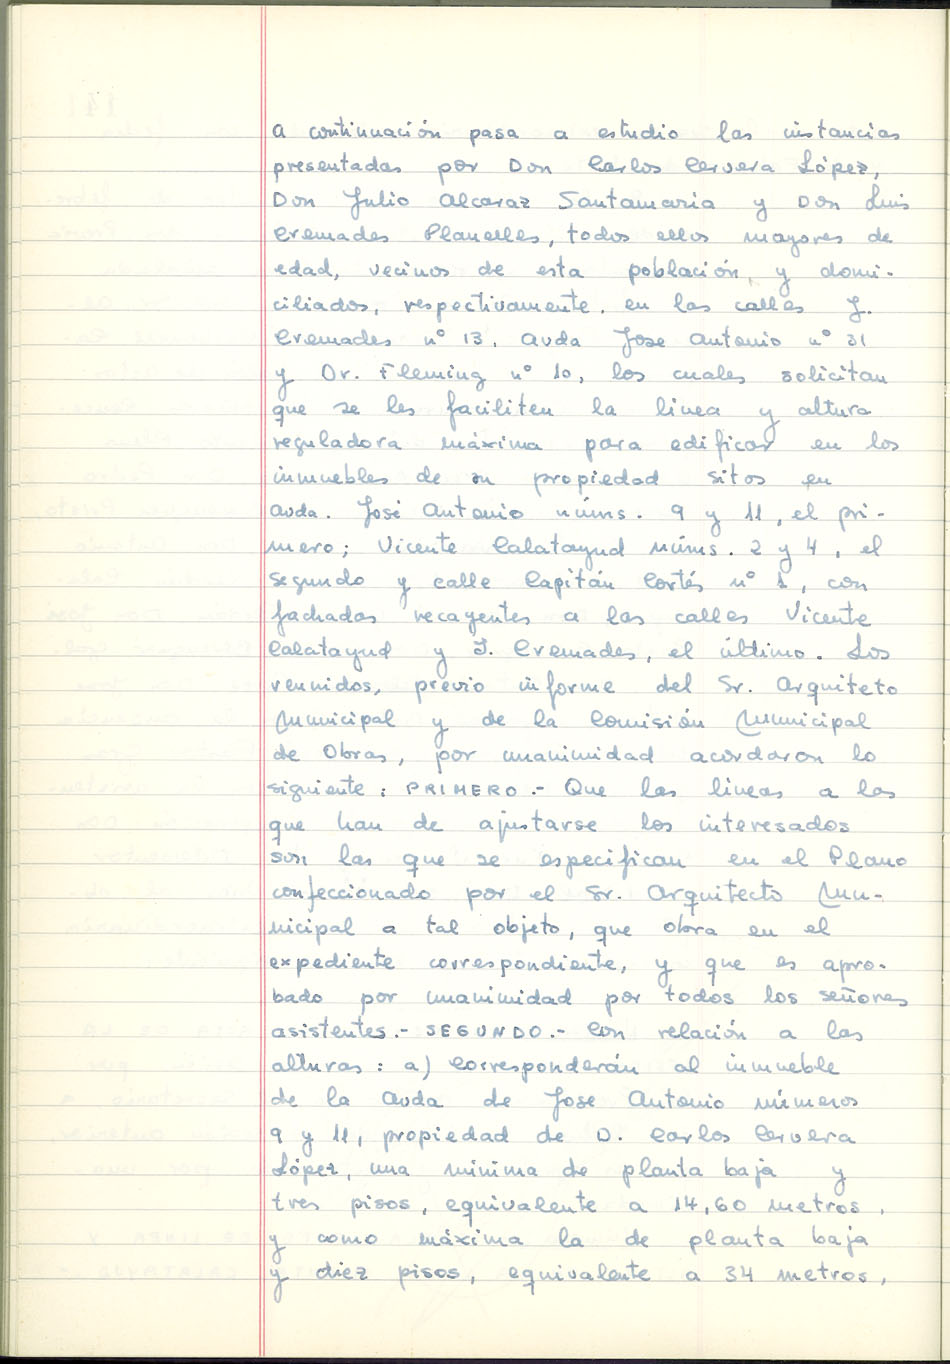 a continuación pasa a estudio las instancias
presentadas por Don Carlos Cervera López,
Don Julio Alcaraz Santamaria y Don Luis
Cremades Planelles, todos ellos mayores de
edad, vecinos de esta población, y domi-
ciliados, respectivamente, en las calles J.
Cremades nº 13, Avda Jose Antonio nº 31
y Dr. Fleming nº 10, los cuales solicitan
que se les faciliten la linea y altura
reguladora máxima para edificar en los
inmuebles de su propiedad sitos en
Avda. José Antonio núms. 9 y 11, el pri-
mero; Vicente Calatayud núms. 2 y 4, el
segundo y calle Capitán Cortés nº 1, con
fachadas recayentes a las calles Vicente
Calatayud y J. Cremades, el último. Los
reunidos, previo informe del Sr. Arquiteto
Municipal y de la Comisión Municipal
de Obras, por unanimidad acordaron lo
siguiente: PRIMERO.- Que las lineas a las
que han de ajustarse los interesados
son las que se especifican en el Plano
confeccionado por el Sr. Arquitecto Mu-
nicipal a tal objeto, que obra en el
expediente correspondiente, y que es apro-
bado por unanimidad por todos los señores
asistentes.- SEGUNDO.- Con relación a las
alturas: a) Corresponderán al inmueble
de la Avda de Jose Antonio números
9 y 11, propiedad de D. Carlos Cervera
López, una minima de planta baja y
tres pisos, equivalente a 14,60 metros,
y como máxima la de planta baja
y diez pisos, equivalente a 34 metros,